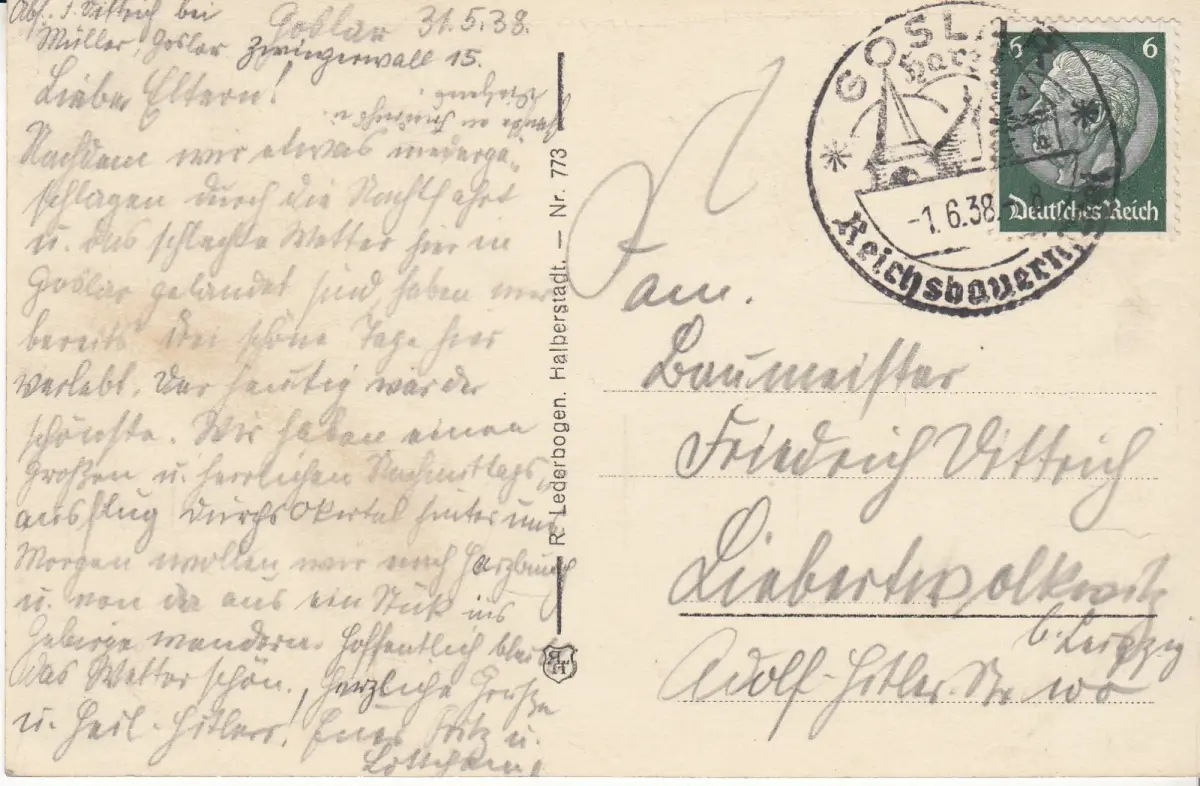 Abs. F. Dittrich bei Goslar 31.5.38.
Müller, Goslar Zwingerwall 15.
Liebe Eltern!
Nachdem wir etwas niederge-
schlagen durch die Nachtfahrt
u. das schlechte Wetter hier in
Goslar gelandet sind haben wir
bereits drei schöne Tage hier
verlebt. Der heutig war der
schönste. Wir haben einen
großen u. herrlichen Nachmittags-
ausflug durchs Okertal hinter uns
Morgen wollen wir nach Harzburg
u. von da aus ein Stück ins
Gebirge wandern. Hoffentlich bleibt
das Wetter schön. Herzliche Grüße
u. Heil-Hitler! Euer Fritz u.
Lottchen!
Grüße an
R. Lederbogen. Halberstadt. — Nr. 773
GOSLAR
Harz
-1.6.38 8
Reichsbauern
6 6
Deutsches Reich
Fam.
Baumeister
Friedrich Dittrich
Liebertwolkwitz
b. Leipzig
Adolf-Hitler-Str.